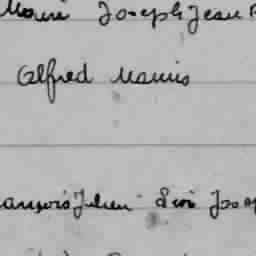 Marie Joseph Jean
Alfred Marius
ançois Julien Joseph